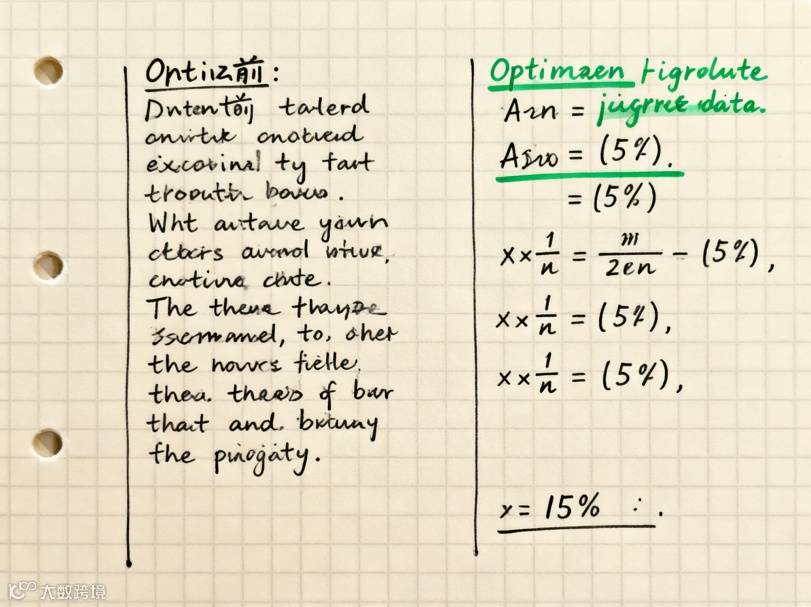 Optiz前:
Dntent前 talerd
onvitik onobved
excotinal ty fart
troouth bovus.
Wht autave yourn
ctbers avenol intive,
cnotive chte.
The theve thayze
to, oher
the novrs fielle.
thea. thees of bur
that and. bktuny
the pinogaty.
Optimaen Figrolute
Azn = jugrret data.
Asio = (5%).
= (5%)
x × 1/n = m/2en − (5%),
x × 1/n = (5%),
x × 1/n = (5%),
x = 15% ∴.
大数跨境